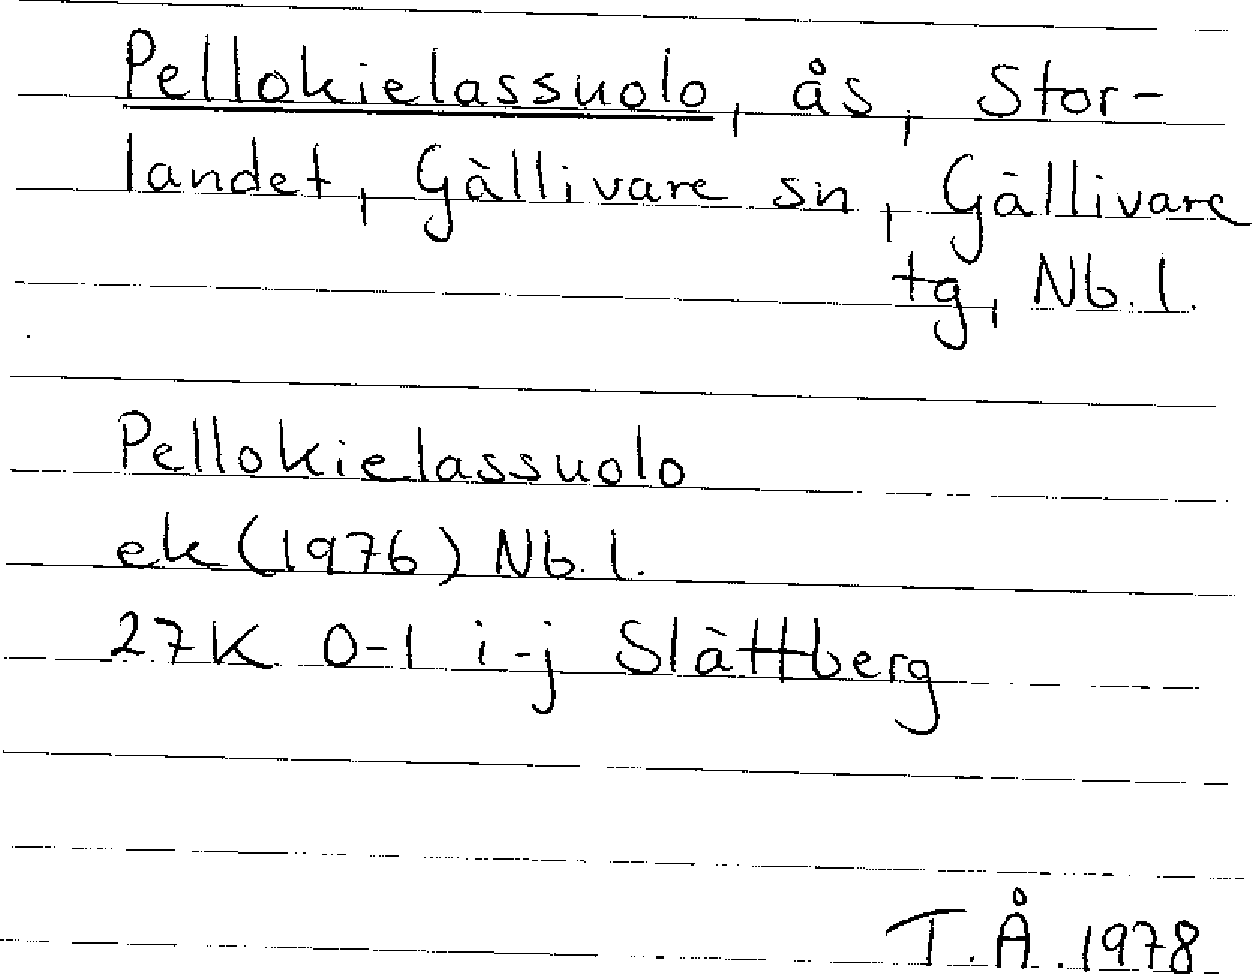 Pellokielassuolo, ås, Stor-
landet, Gällivare sn, Gällivare
tg, Nb. l.
Pellokielassuolo
ek (1976) Nb. l.
27K 0-1 i-j Slättberg
T.Å. 1978